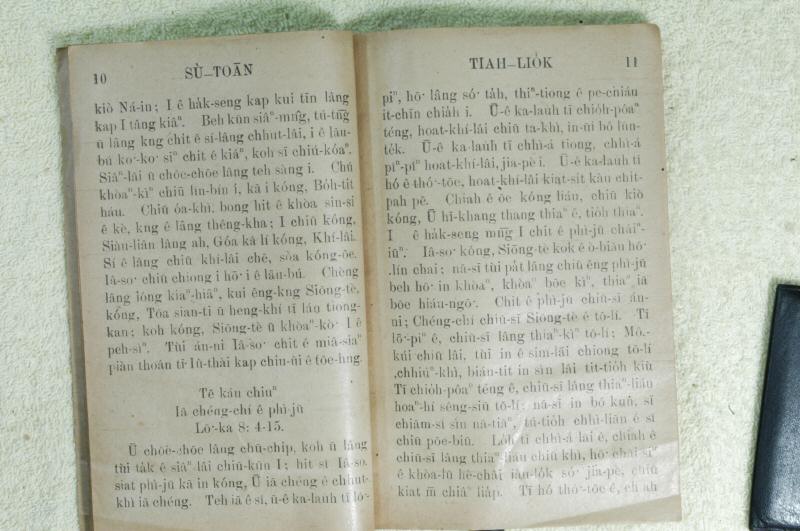 10
SÙ–TOĀN
kiò Ná-in; I ê ha̍k-seng kap kui tīn lâng
kap I tâng kiâⁿ. Beh kūn siâⁿ-mn̂g, tú-tn̄g
ū lâng kng chi̍t ê sí-lâng chhut-lâi, i ê lāu-
bú ko͘-ko͘ siⁿ chi̍t ê kiáⁿ, koh sī chiú-kóaⁿ.
Siâⁿ-lāi ū chōe-chōe lâng teh sàng i. Chú
khòaⁿ-kìⁿ chiū lîn-bín í, kā i kóng, Bo̍h-tit
háu. Chiū óa-khì, bong hit ê khòa sin-si
ê kè, kng ê lâng thêng-kha; I chiū kóng,
Siàu-liân lâng ah, Góa kà lí kóng, Khí-lâi.
Sí ê lâng chiū khí-lâi chē, sòa kóng-ōe.
Iâ-so͘ chiū chiong i hō͘ i ê lāu-bú. Chèng
lâng lóng kiaⁿ-hiâⁿ, kui êng-kng Siōng-tè,
kóng, Tōa sian-ti ū heng-khí tī lán tiong-
kan; koh kóng, Siōng-tè ū khòaⁿ-kò͘ I ê
peh-sìⁿ. Tùi án-ni Iâ-so͘ chit ê miâ-siaⁿ
piàn thoân tī Iû-thài kap chiu-ûi ê tōe-hng.
Tē káu chiuⁿ
Iā chéng-chí ê phì-jū
Lō͘-ka 8: 4-15.
Ū chōe-chōe lâng chū-chi̍p, koh ū lâng
tùi ta̍k ê siâⁿ lâi chiū-kūn I; hit sî Iâ-so͘
siat phì-jū kā in kóng, Ū iā chéng ê chhut-
khì iā chéng. Teh iā ê sî, ū-ê ka-lauh tī lō͘-
TIAH–LIO̍K
11
piⁿ, hō͘ lâng só͘ ta̍h, thiⁿ-tiong ê pe-chiáu
it-chīn chia̍h i. Ū-ê ka-lauh tī chio̍h-pôaⁿ
téng, hoat-khí-lâi chiū ta-khì, in-ūi bô lūn-
te̍k. Ū-ê ka-lauh tī chhì-á tiong, chhì-á
pîⁿ-pîⁿ hoat-khí-lâi, jia-pè i. Ū-ê ka-lauh tī
hó ê thó͘-tōe, hoat-khí-lâi kiat-si̍t kàu chi̍t-
pah pē. Chiah ê ōe kóng liáu, chiū kiò
kóng, Ū hī-khang thang thiaⁿ ê, tio̍h thiaⁿ.
I ê ha̍k-seng mn̄g I chit ê phì-jū cháiⁿ-
iūⁿ. Iâ-so͘ kóng, Siōng-tè kok ê ò-biāu hō͘
lín chai; nā-sī tùi pa̍t lâng chiū ēng phì-jū
beh hō͘ in khòaⁿ, khòaⁿ bōe kìⁿ, thiaⁿ iā
bōe hiáu-ngō͘. Chit ê phì-jū chiū-sī án-
ni; Chéng-chí chiū-sī Siōng-tè ê tō-lí. Tī
lō͘-piⁿ ê, chiū-sī lâng thiaⁿ-kìⁿ tō-lí; Mô͘-
kúi chiū lâi, tùi in ê sim-lāi chiong tō-lí
chhiúⁿ-khì, bián-tit in sìn lâi tit-tio̍h kiù
Tī chio̍h-pôaⁿ téng ê, chiū-sī lâng thiaⁿ-liáu
hoaⁿ-hí sêng-siū tō-lí; nā-sī in bô kun, sī
chiām-sî sìn nā-tiāⁿ, tú-tio̍h chhì-liān ê sî
chiū pōe-biū. Lo̍h tī chhì-á lāi ê, chiah ê
chiū-sī lâng thiaⁿ liáu chiū khì, hō͘ chāi sìⁿ
ê khòa-lū hè-châi iân-lo̍k só͘ jia-pè, chiū
kiat m̄ chiâⁿ lia̍p. Tī hó thó͘-tōe ê,